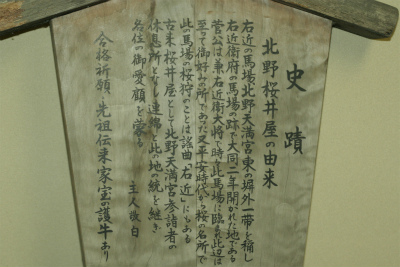 史蹟
北野桜井屋の由来
右近の馬場北野天満宮東の塀外一帯を称し
右近衛府の馬場の跡で大同二年開かれた地である
菅公は兼右近衛大将で時々此馬場に臨まれ此辺は
至って御好みの所であった又平安時代から桜の名所で
此の馬場の桜狩のことは謡曲「右近」にもある
古来桜井屋として北野天満宮参詣者の
休憩所となし連綿と此の地の統を継ぎ
各位の御愛顧を蒙る
主人敬白
合格祈願 先祖伝来家宝の護牛あり